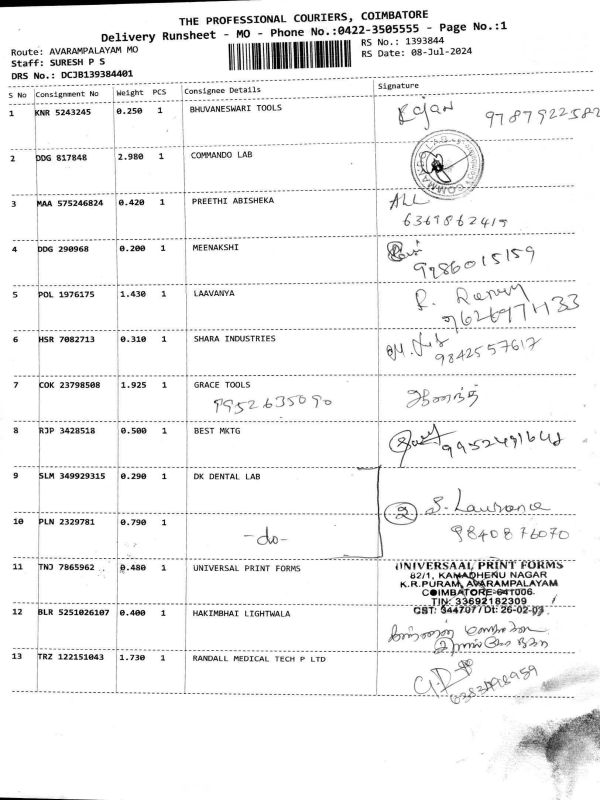 THE PROFESSIONAL COURIERS, COIMBATORE
Delivery Runsheet - MO - Phone No.:0422-3505555 - Page No.:1
Route: AVARAMPALAYAM MO
RS No.: 1393844
Staff: SURESH P S
RS Date: 08-Jul-2024
DRS No.: DCJB139384401
S No Consignment No Weight PCS Consignee Details Signature
1 KNR 5243245 0.250 1 BHUVANESWARI TOOLS Rajan
9787922582
2 DDG 817848 2.980 1 COMMANDO LAB
3 MAA 575246824 0.420 1 PREETHI ABISHEKA
6369862419
4 DDG 290968 0.200 1 MEENAKSHI
9286015159
5 POL 1976175 1.430 1 LAAVANYA
6 HSR 7082713 0.310 1 SHARA INDUSTRIES
9842557617
7 COK 23798508 1.925 1 GRACE TOOLS
9952635090
ஆனந்த்
8 RJP 3428518 0.500 1 BEST MKTG
9 SLM 349929315 0.290 1 DK DENTAL LAB
2 S. Laurance
10 PLN 2329781 0.790 1 -do-
9840876070
11 TNJ 7865962 0.480 1 UNIVERSAL PRINT FORMS
UNIVERSAAL PRINT FORMS
82/1, KAMADHENU NAGAR
K.R.PURAM, AVARAMPALAYAM
COIMBATORE-641006
TIN: 33692182309
CST: 344707/Dt: 26-02-03
12 BLR 5251026107 0.400 1 HAKIMBHAI LIGHTWALA
13 TRZ 122151043 1.730 1 RANDALL MEDICAL TECH P LTD